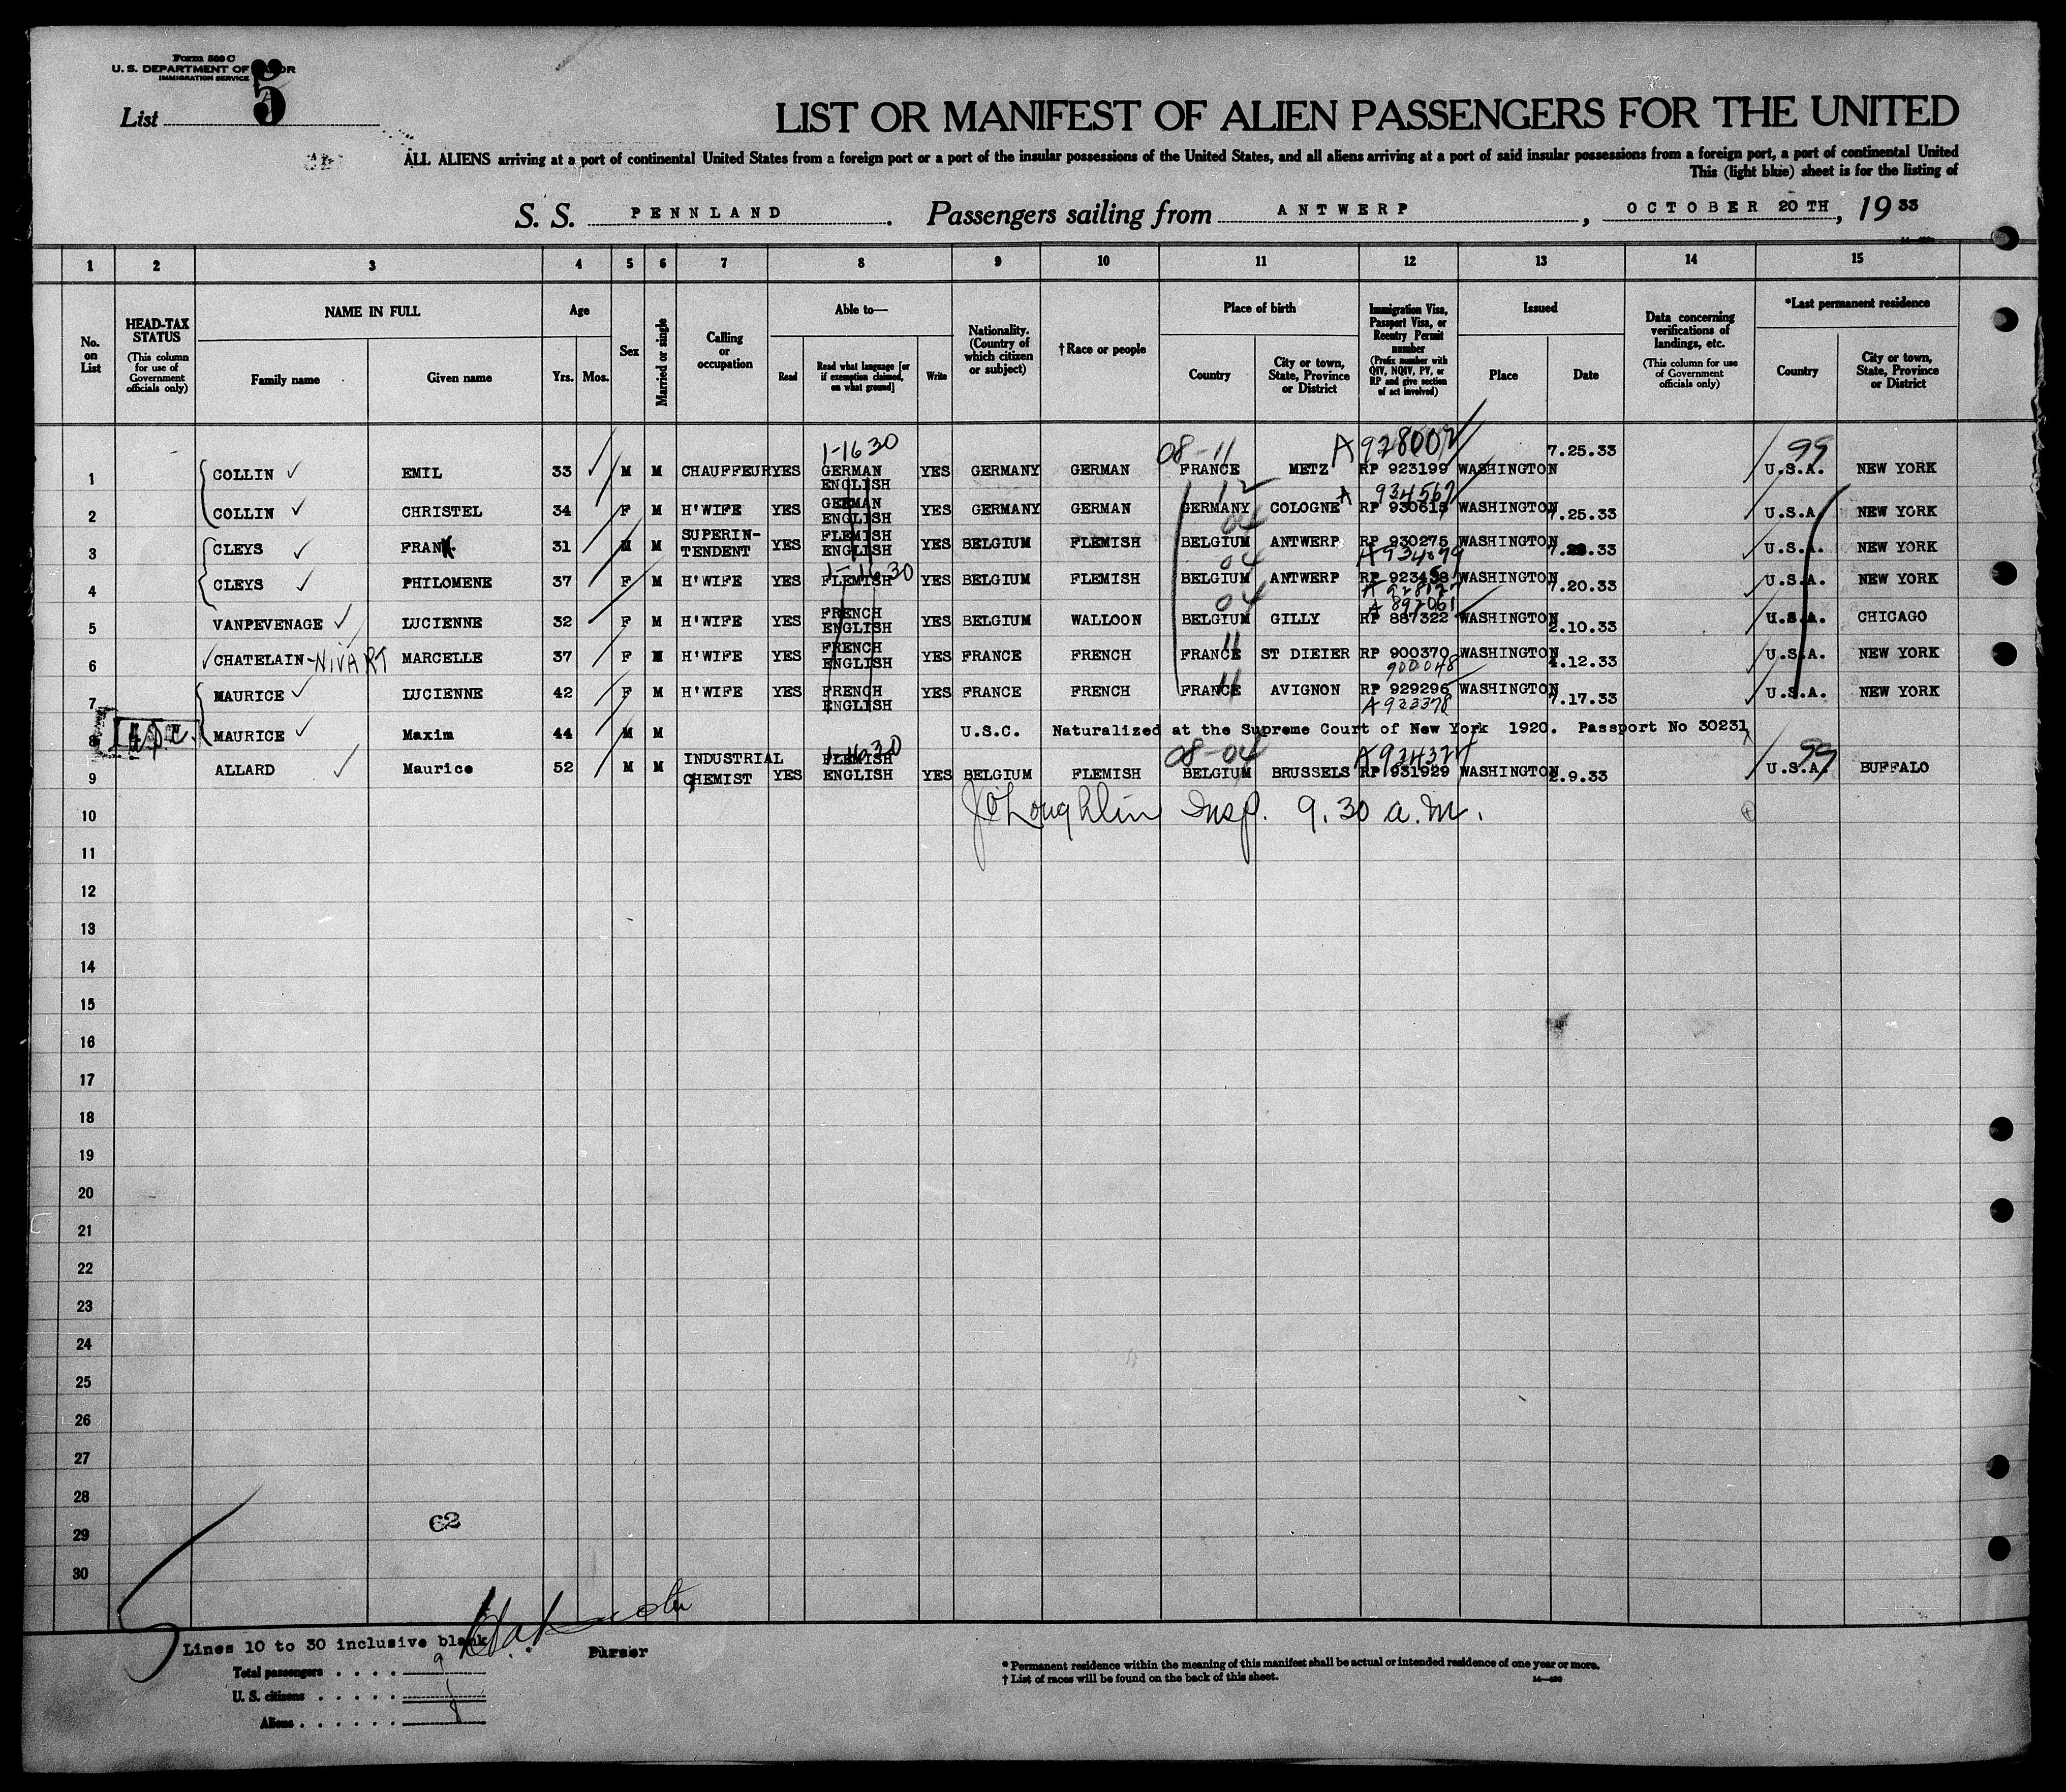 Form 500 C
U. S. DEPARTMENT OF LABOR
IMMIGRATION SERVICE
List 5
LIST OR MANIFEST OF ALIEN PASSENGERS FOR THE UNITED
ALL ALIENS arriving at a port of continental United States from a foreign port or a port of the insular possessions of the United States, and all aliens arriving at a port of said insular possessions from a foreign port, a port of continental United
This (light blue) sheet is for the listing of
S. S. PENNLAND. Passengers sailing from ANTWERP, OCTOBER 20 TH, 19 33
1 2 3 4 5 6 7 8 9 10 11 12 13 14 15
No. on List
HEAD-TAX STATUS
(This column for use of Government officials only)
NAME IN FULL
Family name
Given name
Age
Yrs. Mos.
Sex
Married or single
Calling or occupation
Able to—
Read
Read what language [or if exemption claimed, on what ground]
Write
Nationality. (Country of which citizen or subject)
†Race or people
Place of birth
Country
City or town, State, Province or District
Immigration Visa, Passport Visa, or Reentry Permit number
(Prefix number with QIV, NQIV, PV, or RP and give section of act involved)
Issued
Place
Date
Data concerning verifications of landings, etc.
(This column for use of Government officials only)
*Last permanent residence
Country
City or town, State, Province or District
1-1630 08-11 A 928007 99
1 COLLIN EMIL 33 M M CHAUFFEUR YES GERMAN ENGLISH YES GERMANY GERMAN FRANCE METZ RP 923199 WASHINGTON 7.25.33 U.S.A. NEW YORK
12 A 934567
2 COLLIN CHRISTEL 34 F M H'WIFE YES GERMAN ENGLISH YES GERMANY GERMAN GERMANY COLOGNE RP WASHINGTON 7.25.33 U.S.A. NEW YORK
04
3 CLEYS FRANK 31 M M SUPERIN-TENDENT YES FLEMISH ENGLISH YES BELGIUM FLEMISH BELGIUM ANTWERP RP 930275 WASHINGTON U.S.A. NEW YORK
1-1630 04
4 CLEYS PHILOMENE 37 F M H'WIFE YES FLEMISH YES BELGIUM FLEMISH BELGIUM ANTWERP RP WASHINGTON 7.20.33 U.S.A. NEW YORK
04 A 892061
5 VANPEVENAGE LUCIENNE 32 F M H'WIFE YES FRENCH ENGLISH YES BELGIUM WALLOON BELGIUM GILLY RP 887322 WASHINGTON 2.10.33 U.S.A. CHICAGO
11
6 CHATELAIN-NIVART MARCELLE 37 F M H'WIFE YES FRENCH ENGLISH YES FRANCE FRENCH FRANCE ST DIEIER RP 900370 WASHINGTON 4.12.33 U.S.A. NEW YORK
900048
11
7 MAURICE LUCIENNE 42 F M H'WIFE YES FRENCH ENGLISH YES FRANCE FRENCH FRANCE AVIGNON RP 929296 WASHINGTON 7.17.33 U.S.A. NEW YORK
A 923378
8 MAURICE Maxim 44 M M U.S.C. Naturalized at the Supreme Court of New York 1920. Passport No 30231
1-1630 08-04 99
9 ALLARD Maurice 52 M M INDUSTRIAL CHEMIST YES FLEMISH ENGLISH YES BELGIUM FLEMISH BELGIUM BRUSSELS RP 931929 WASHINGTON 2.9.33 U.S.A. BUFFALO
10 J O'Loughlin Insp. 9.30 a.m.
11
12
13
14
15
16
17
18
19
20
21
22
23
24
25
26
27
28
29
62
30
Lines 10 to 30 inclusive blank
Purser
Total passengers . . . . 9
U. S. citizens . . . . .
Aliens . . . . . .
* Permanent residence within the meaning of this manifest shall be actual or intended residence of one year or more.
† List of races will be found on the back of this sheet.
14—480